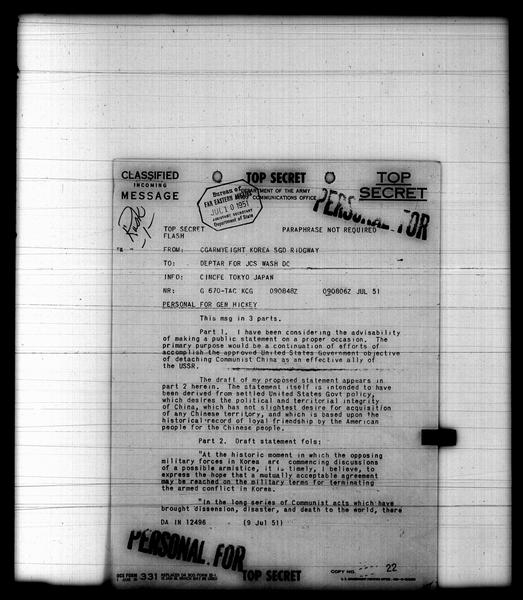 CLASSIFIED
INCOMING
MESSAGE
TOP SECRET
DEPARTMENT OF THE ARMY
COMMUNICATIONS OFFICE
TOP
SECRET
Bureau of
FAR EASTERN AFFAIRS
JUL 10 1951
ASSISTANT SECRETARY
Department of State
PERSONAL FOR
TOP SECRET
FLASH
PARAPHRASE NOT REQUIRED
FROM: CGARMYEIGHT KOREA SGD RIDGWAY
TO: DEPTAR FOR JCS WASH DC
INFO: CINCFE TOKYO JAPAN
NR: G 670-TAC KCG 090848Z 090806Z JUL 51
PERSONAL FOR GEN HICKEY
This msg in 3 parts.
Part 1. I have been considering the advisability
of making a public statement on a proper occasion. The
primary purpose would be a continuation of efforts of
accomplish the approved United States Government objective
of detaching Communist China as an effective ally of
the USSR.
The draft of my proposed statement appears in
part 2 herein. The statement itself is intended to have
been derived from settled United States Govt policy,
which desires the political and territorial integrity
of China, which has not slightest desire for acquisition
of any Chinese territory, and which is based upon the
historical record of loyal friendship by the American
people for the Chinese people.
Part 2. Draft statement fols:
"At the historic moment in which the opposing
military forces in Korea are commencing discussions
of a possible armistice, it is timely, I believe, to
express the hope that a mutually acceptable agreement
may be reached on the military terms for terminating
the armed conflict in Korea.
"In the long series of Communist acts which have
brought dissension, disaster, and death to the world, there
DA IN 12496 (9 Jul 51)
PERSONAL FOR
FORM 331
TOP SECRET
COPY NO. 22